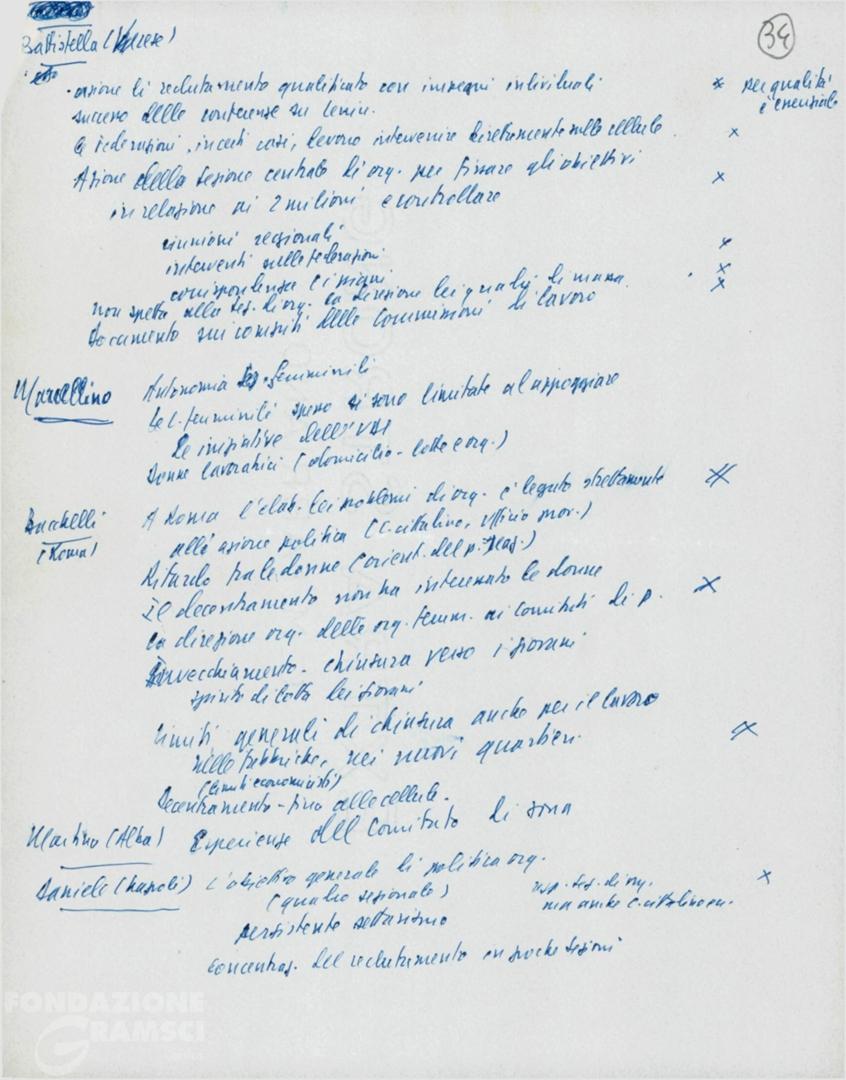 34
Battistella (Varese)
azione di reclutamento qualificato con impegni individuali × per qualità
successo delle conferenze su Lenin. è essenziale
Le Federazioni, in certi casi, devono intervenire direttamente sulle cellule ×
Azione della Sezione centrale di org. per fissare gli obiettivi ×
in relazione ai 2 milioni e controllare
riunioni regionali ×
interventi nelle Federazioni ×
corrispondenza ×
non spetta alla sez. di org. la direzione dei quadri di massa.
Documento sui compiti delle Commissioni di lavoro
Marcellino Autonomia femminili
Le C. femminili spesso si sono limitate ad appoggiare
le iniziative dell'UDI
Donne lavoratrici (domicilio - lotte e org.)
(Roma) A Roma l'elab. dei problemi di org. è legato strettamente ×
all'azione politica (C. cittadino, Ufficio prov.)
Ritardo tra le donne (orient. del p.)
Il decentramento non ha interessato le donne
La direzione org. delle org. femm. ai comitati di p. ×
Invecchiamento - chiusura verso i giovani
spirito di lotta dei giovani
limiti generali di chiusura anche per il lavoro ×
nelle fabbriche, nei nuovi quartieri
(limiti economisti)
Decentramento - fino alle cellule.
Martino (Alba) Esperienze del Comitato di zona
Daniele (Napoli) L'obiettivo generale di politica org. ×
(quadro sezionale) resp. sez. di org.
ma anche C. cittadino
persistente settarismo
concentraz. del reclutamento in poche sezioni
FONDAZIONE
GRAMSCI